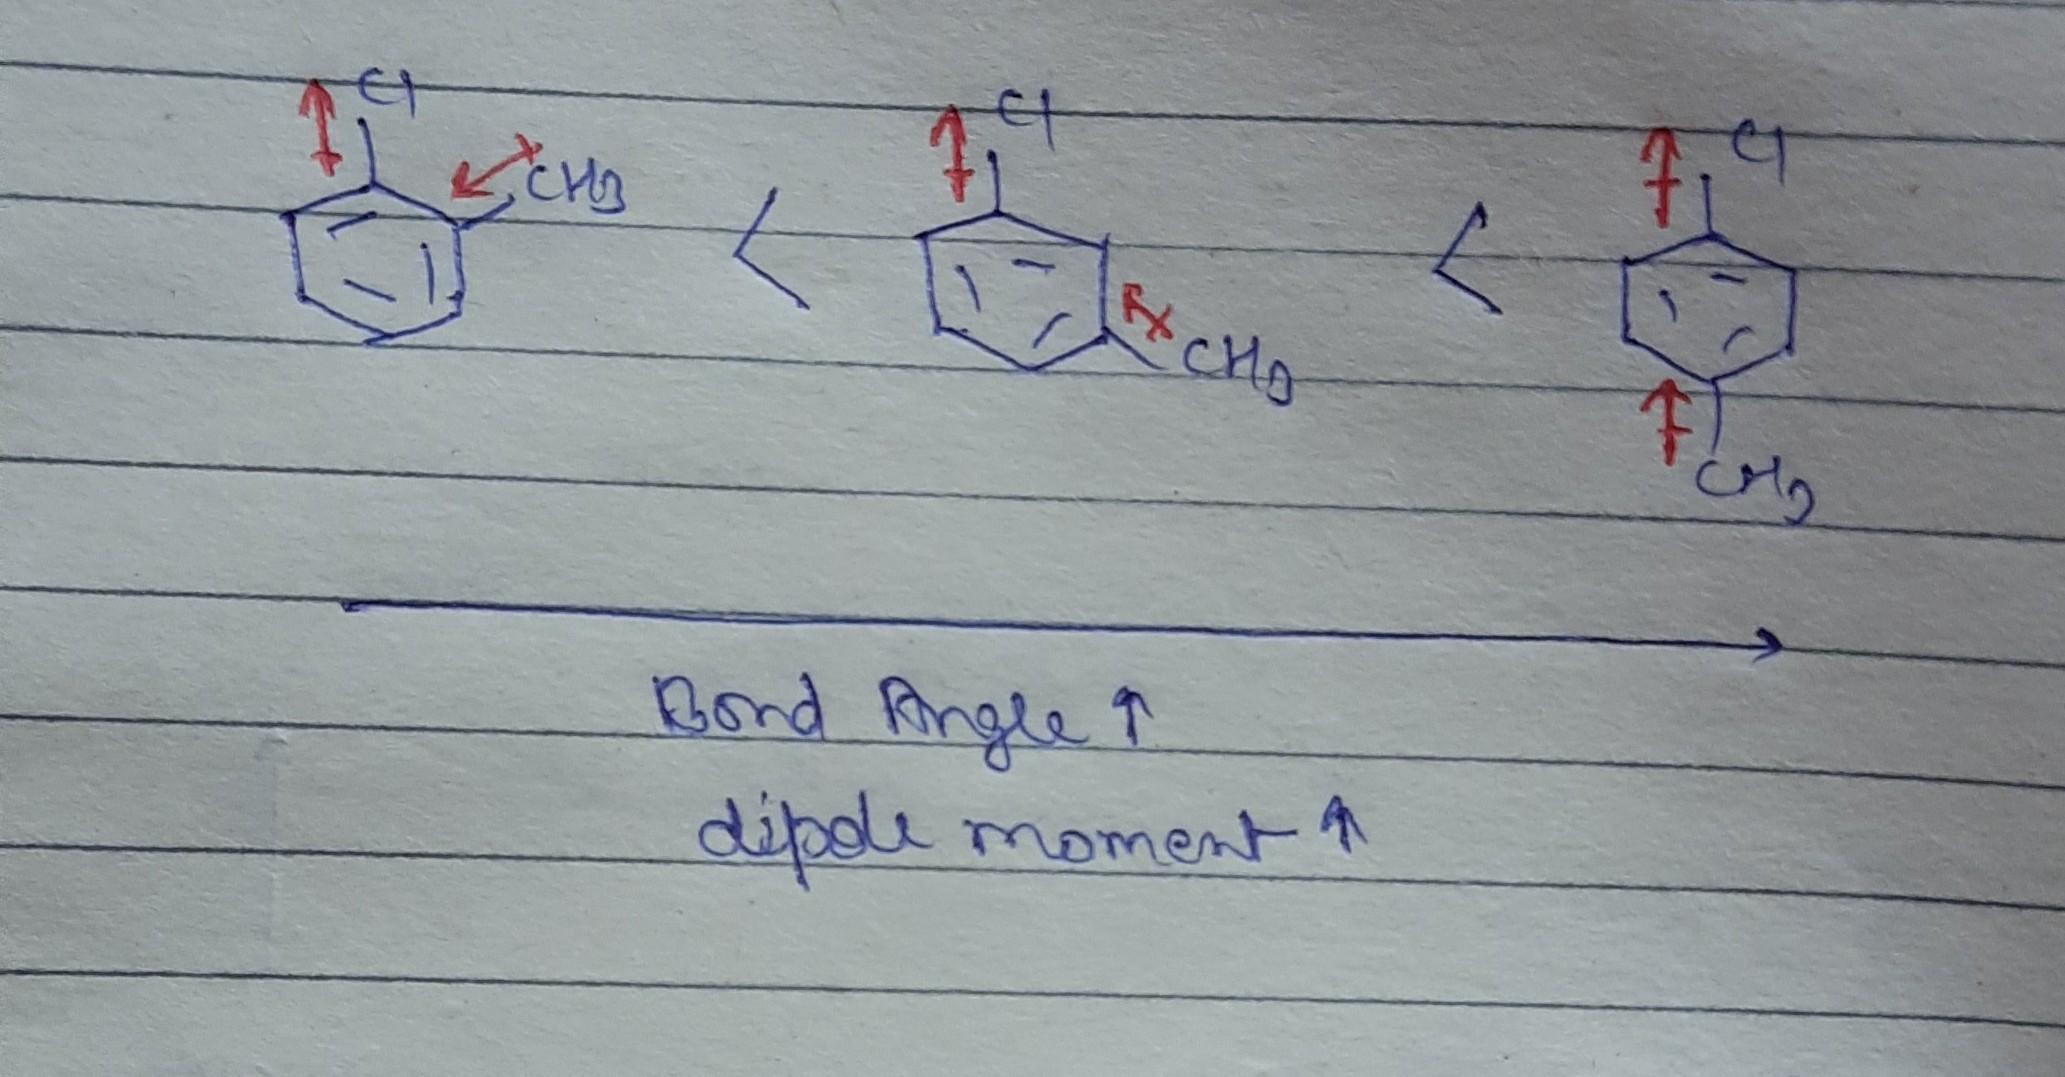 Cl Cl Cl
CH3 < CH3 < CH3
Bond Angle ↑
dipole moment ↑